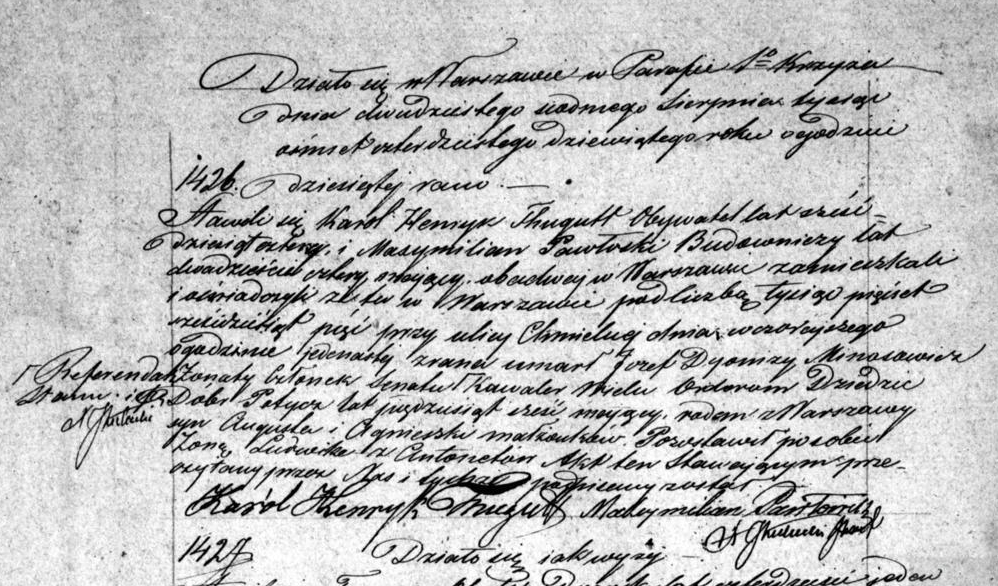 Działo się w Warszawie w Parafii S-o Krzyża
dnia dwudziestego siodmego Sierpnia tysiąc
ośmset czterdziestego dziewiątego roku o godzinie
1426. dziesiątej rano. —
Stawili się Karol Henryk Thugutt Obywatel lat sześć=
dziesiąt cztery, i Maxymilian Pawłoski Budowniczy lat
dwadzieścia cztery mający, obadwaj w Warszawie zamieszkali
i oświadczyli że tu w Warszawie pod liczbą tysiąc pięćset
sześćdziesiąt pięć przy ulicy Chmielnej dnia wczorajszego
o godzinie jedenastej zrana umarł Józef Dyonizy Minasowicz
Referendarz Stanu i
Żonaty Członek Senatu Kawaler Wielu Orderow Dziedzic
Dobr Potycz lat pięćdziesiąt sześć mający, rodem z Warszawy
syn Augusta i Agnieszki małżonków. Pozostawił po sobie
Żonę Ludwikę z Antonetow Akt ten Stawającym prze-
czytany przez Nas i tychże podpisany został
Karól Henryk Thugutt Maxymilian Pawłowski
1427 Działo się jak wyżej